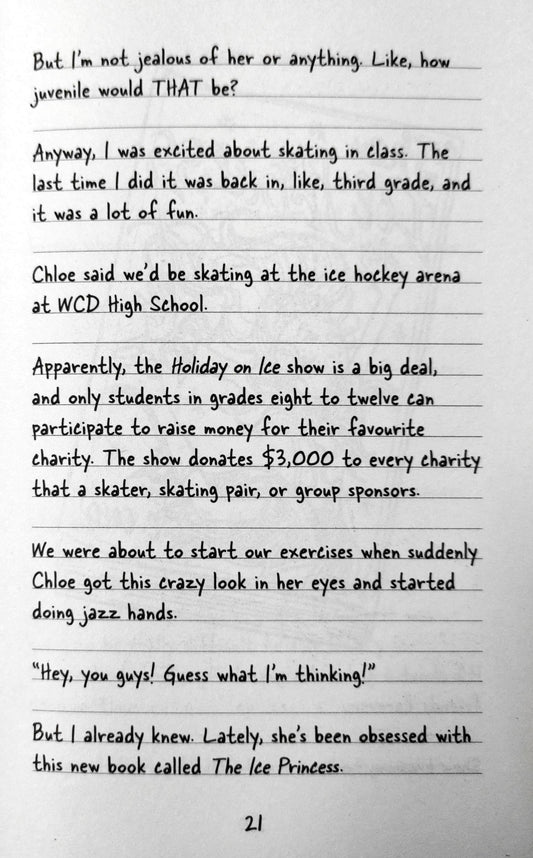 But I'm not jealous of her or anything. Like, how
juvenile would THAT be?
Anyway, I was excited about skating in class. The
last time I did it was back in, like, third grade, and
it was a lot of fun.
Chloe said we'd be skating at the ice hockey arena
at WCD High School.
Apparently, the Holiday on Ice show is a big deal,
and only students in grades eight to twelve can
participate to raise money for their favourite
charity. The show donates $3,000 to every charity
that a skater, skating pair, or group sponsors.
We were about to start our exercises when suddenly
Chloe got this crazy look in her eyes and started
doing jazz hands.
"Hey, you guys! Guess what I'm thinking!"
But I already knew. Lately, she's been obsessed with
this new book called The Ice Princess.
21